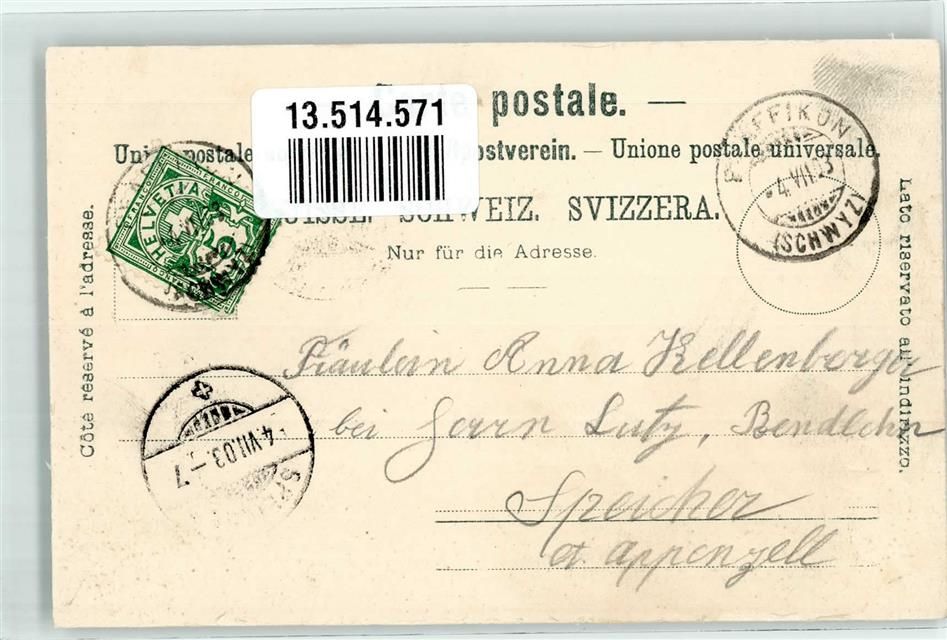 13.514.571
postale. —
postale ostverein. — Unione postale universale.
SUISSE. SCHWEIZ. SVIZZERA.
Nur für die Adresse.
Côte reservé à l'adresse.
Lato riservato all'indirizzo.
HELVETIA
FRANCO
PFÄFFIKON
4.VII.03
(SCHWYZ)
4.VII.03.-7
Fräulein Anna Kellenberger
bei Herrn Lutz, Bendlehn
Speicher
ct. Appenzell